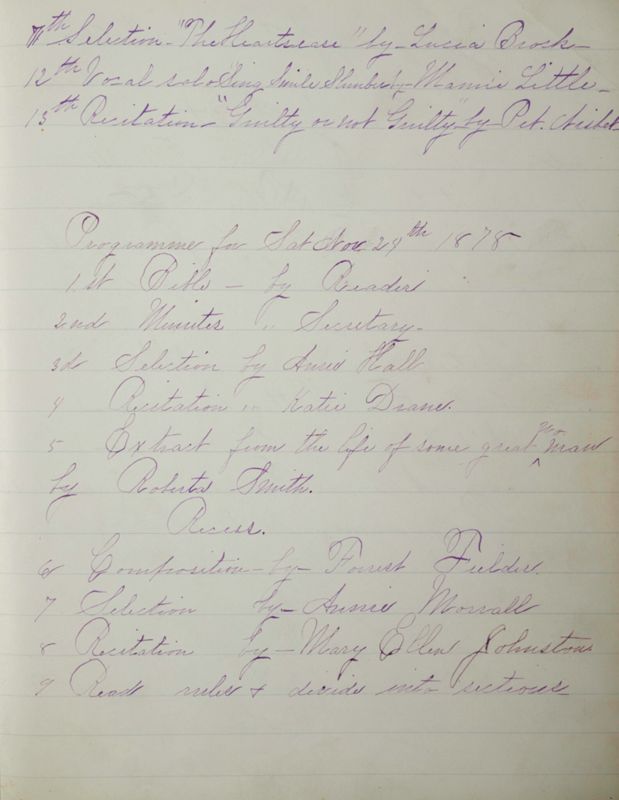 11th Selection - "The Heartsease" by - Lucia Brock -
12th Vocal solo "Sing Smile Slumber" by - Mamie Little -
13th Recitation - "Guilty or not Guilty" by - Pet. Nisbet
Programme for Sat Nov 29th 1878
1st Bible - by Reader
2nd Minutes " Secretary -
3d Selection by Annie Hall
4 Recitation " Katie Drane.
5 Extract from the life of some great man
by Roberta Smith.
Recess.
6 Composition - by - Forrest Fielder.
7 Selection by - Annie Morrall
8 Recitation by - Mary Ellen Johnston
9 Read rules & divide into sections